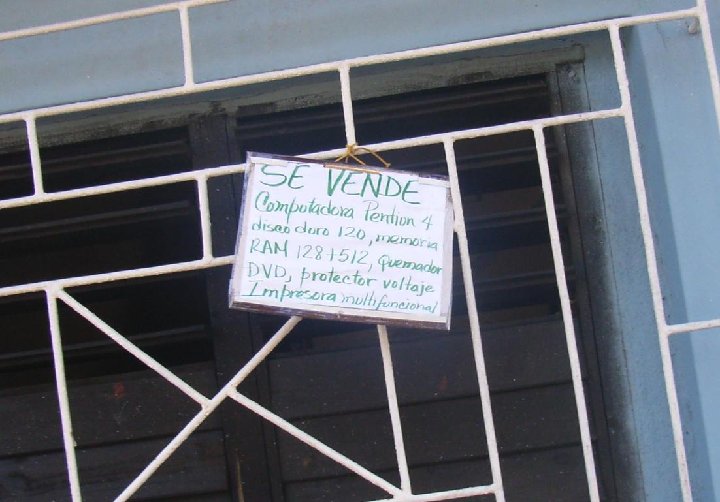 SE VENDE
Computadora Pention 4
disco duro 120, memoria
RAM 128+512, quemador
DVD, protector voltaje
Impresora multifuncional